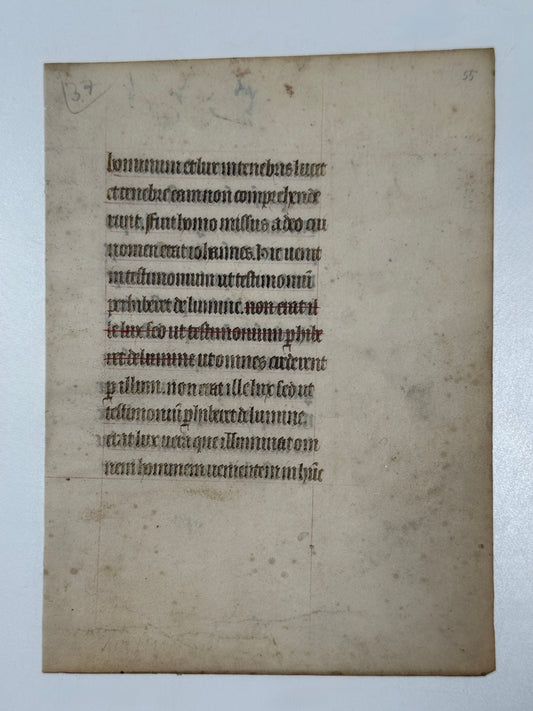 37
55
hominum et lux in tenebris lucet
et tenebre eam non comprehende
runt. Fuit homo missus a deo cui
nomen erat iohannes. hic uenit
in testimonium ut testimoniū
perhiberet de lumine. non erat il
le lux sed ut testimonium phibe
ret de lumine ut omnes crederent
p illum. non erat ille lux sed ut
testimoniū phiberet de lumine.
erat lux uera que illuminat om
nem hominem uenientem in hūc